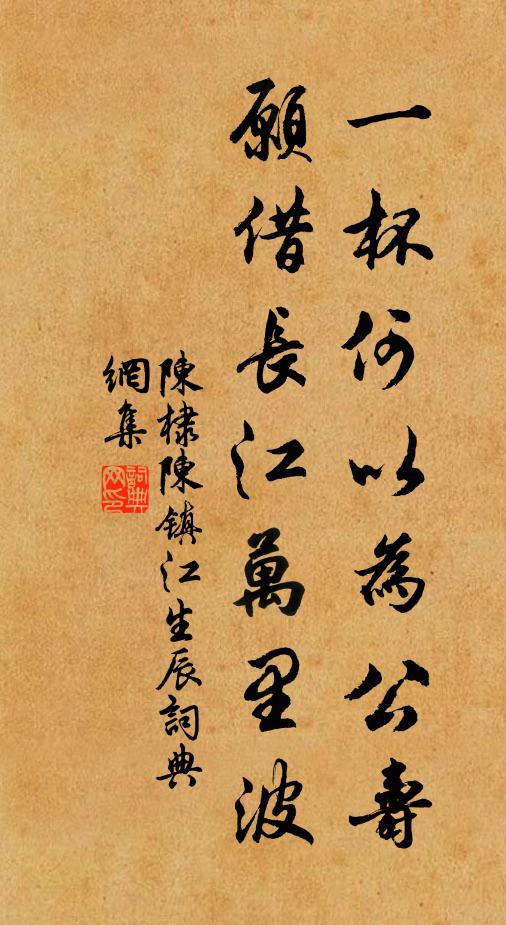 一杯何以為公壽
願借長江萬里波
陳棣陳鎮江生辰詞典
網集
詞典
网印